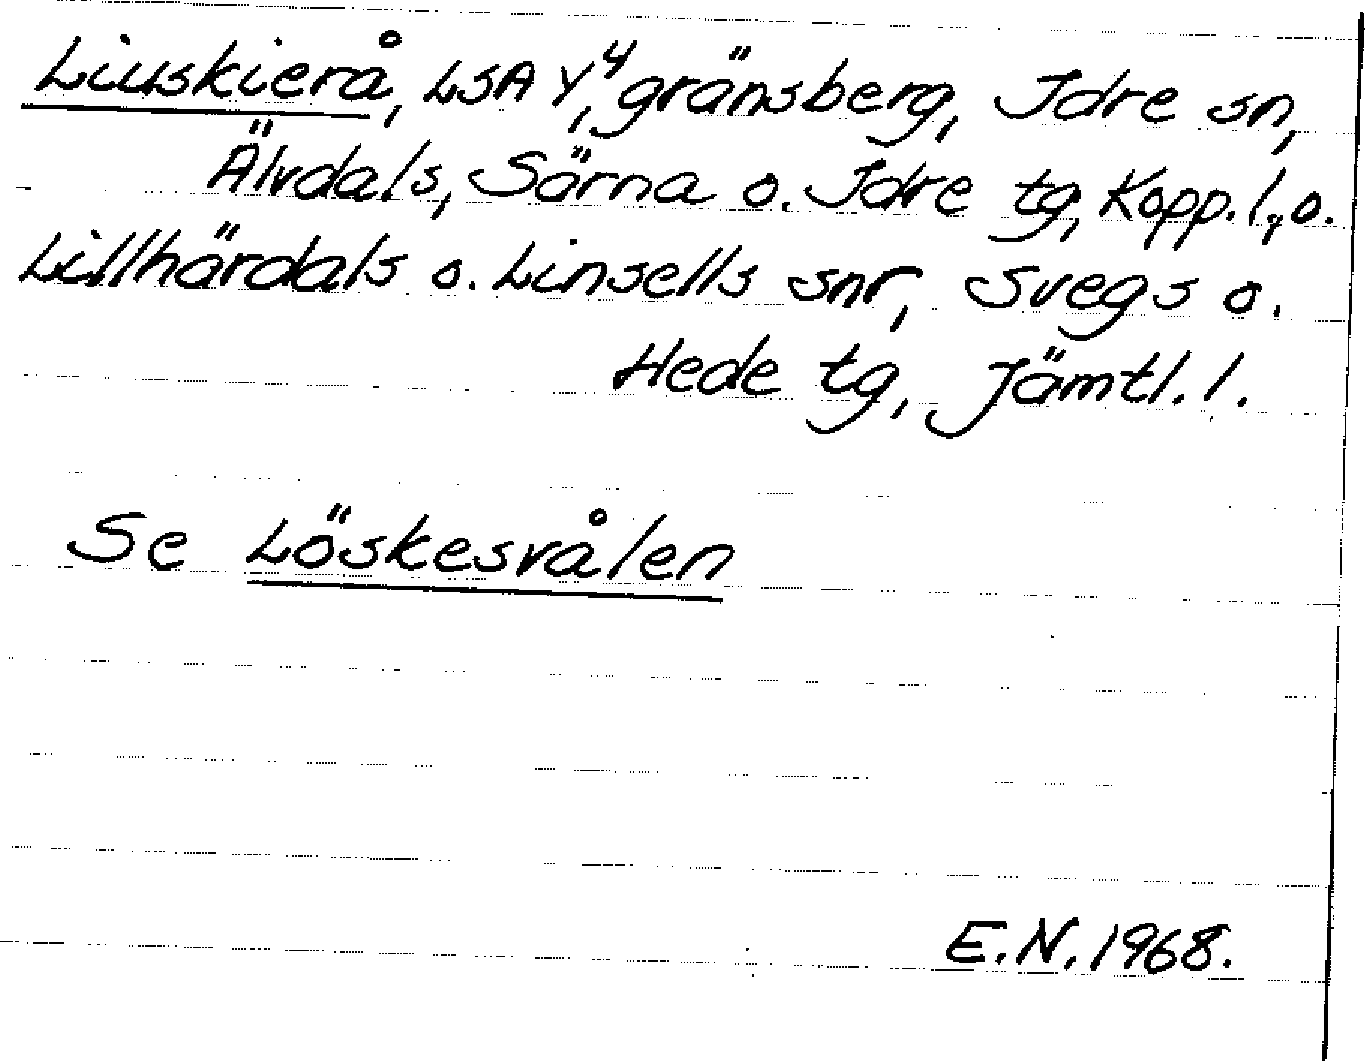 Liuskierå, LSA Y⁴, gränsberg, Idre sn,
Älvdals, Särna o. Idre tg, Kopp. l., o.
Lillhärdals o. Linsells snr, Svegs o.
Hede tg, Jämtl. l.
Se Löskesvålen
E.N. 1968.